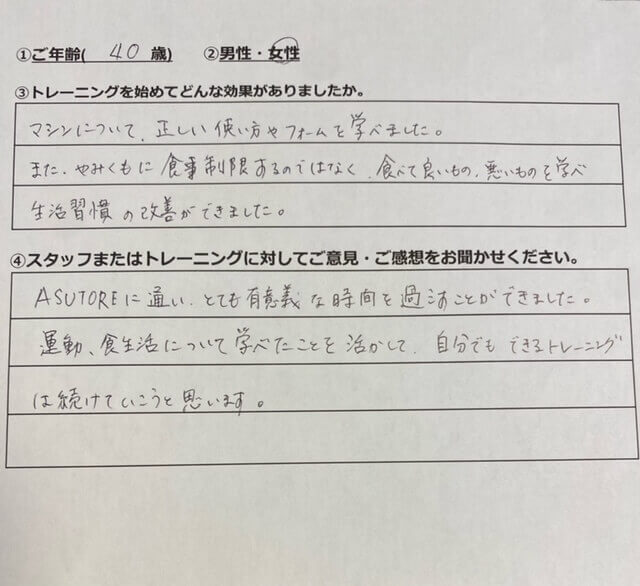 ①ご年齢( 40 歳) ②男性・女性
③トレーニングを始めてどんな効果がありましたか。
マシンについて、正しい使い方やフォームを学べました。
また、やみくもに食事制限するのではなく、食べて良いもの、悪いものを学べ
生活習慣の改善ができました。
④スタッフまたはトレーニングに対してご意見・ご感想をお聞かせください。
ASUTOREに通い、とても有意義な時間を過ごすことができました。
運動、食生活について学べたことを活かして、自分でもできるトレーニング
は続けていこうと思います。